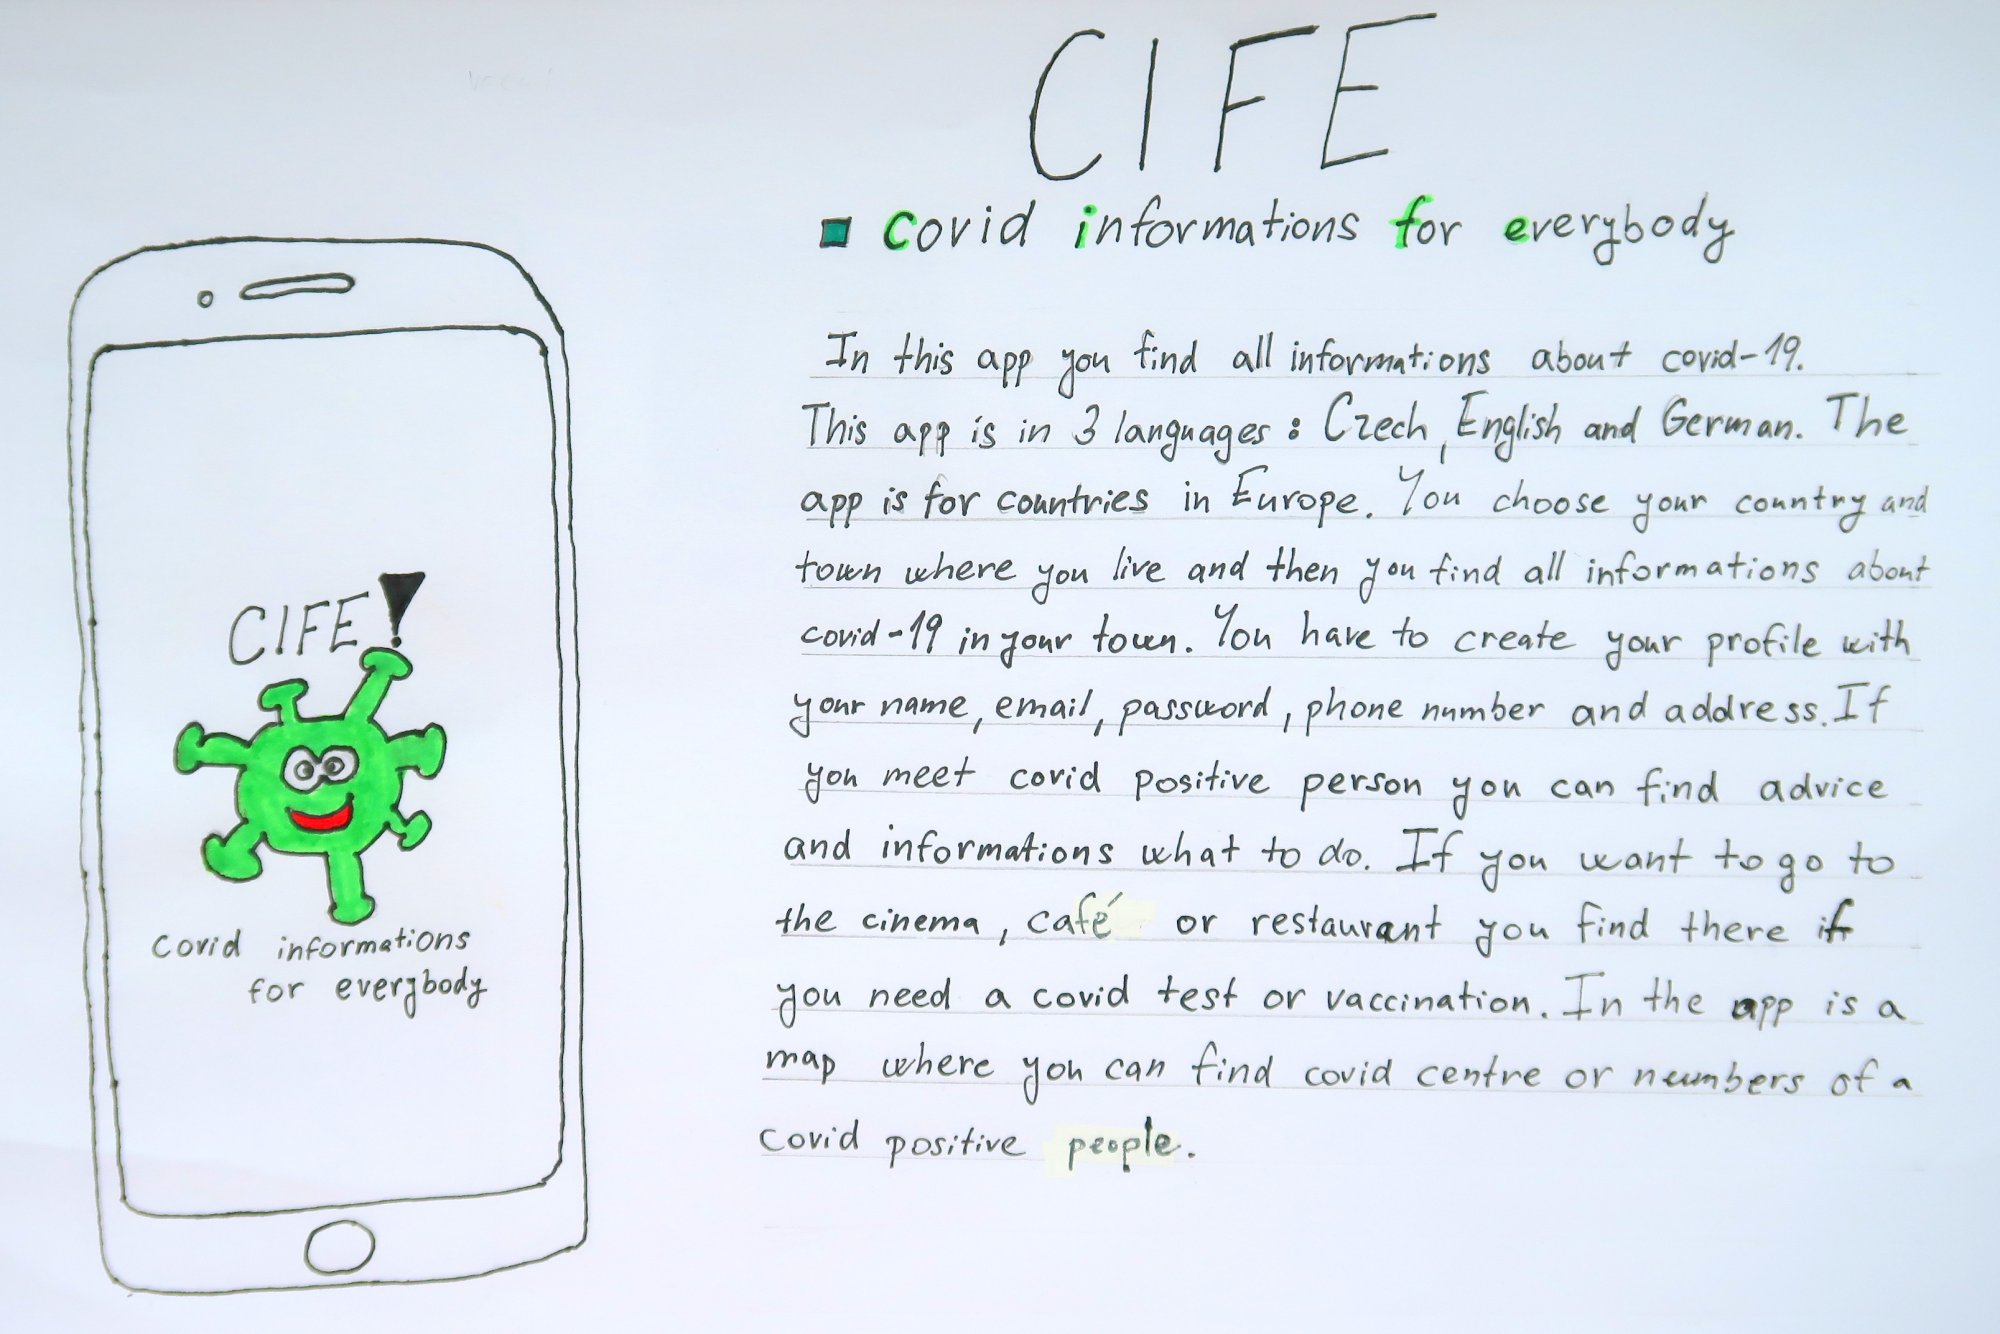 CIFE
covid informations for everybody
In this app you find all informations about covid-19.
This app is in 3 languages: Czech, English and German. The
app is for countries in Europe. You choose your country and
town where you live and then you find all informations about
covid-19 in your town. You have to create your profile with
your name, email, password, phone number and address. If
you meet covid positive person you can find advice
and informations what to do. If you want to go to
the cinema, café or restaurant you find there if
you need a covid test or vaccination. In the app is a
map where you can find covid centre or numbers of a
covid positive people.
CIFE!
covid informations
for everybody